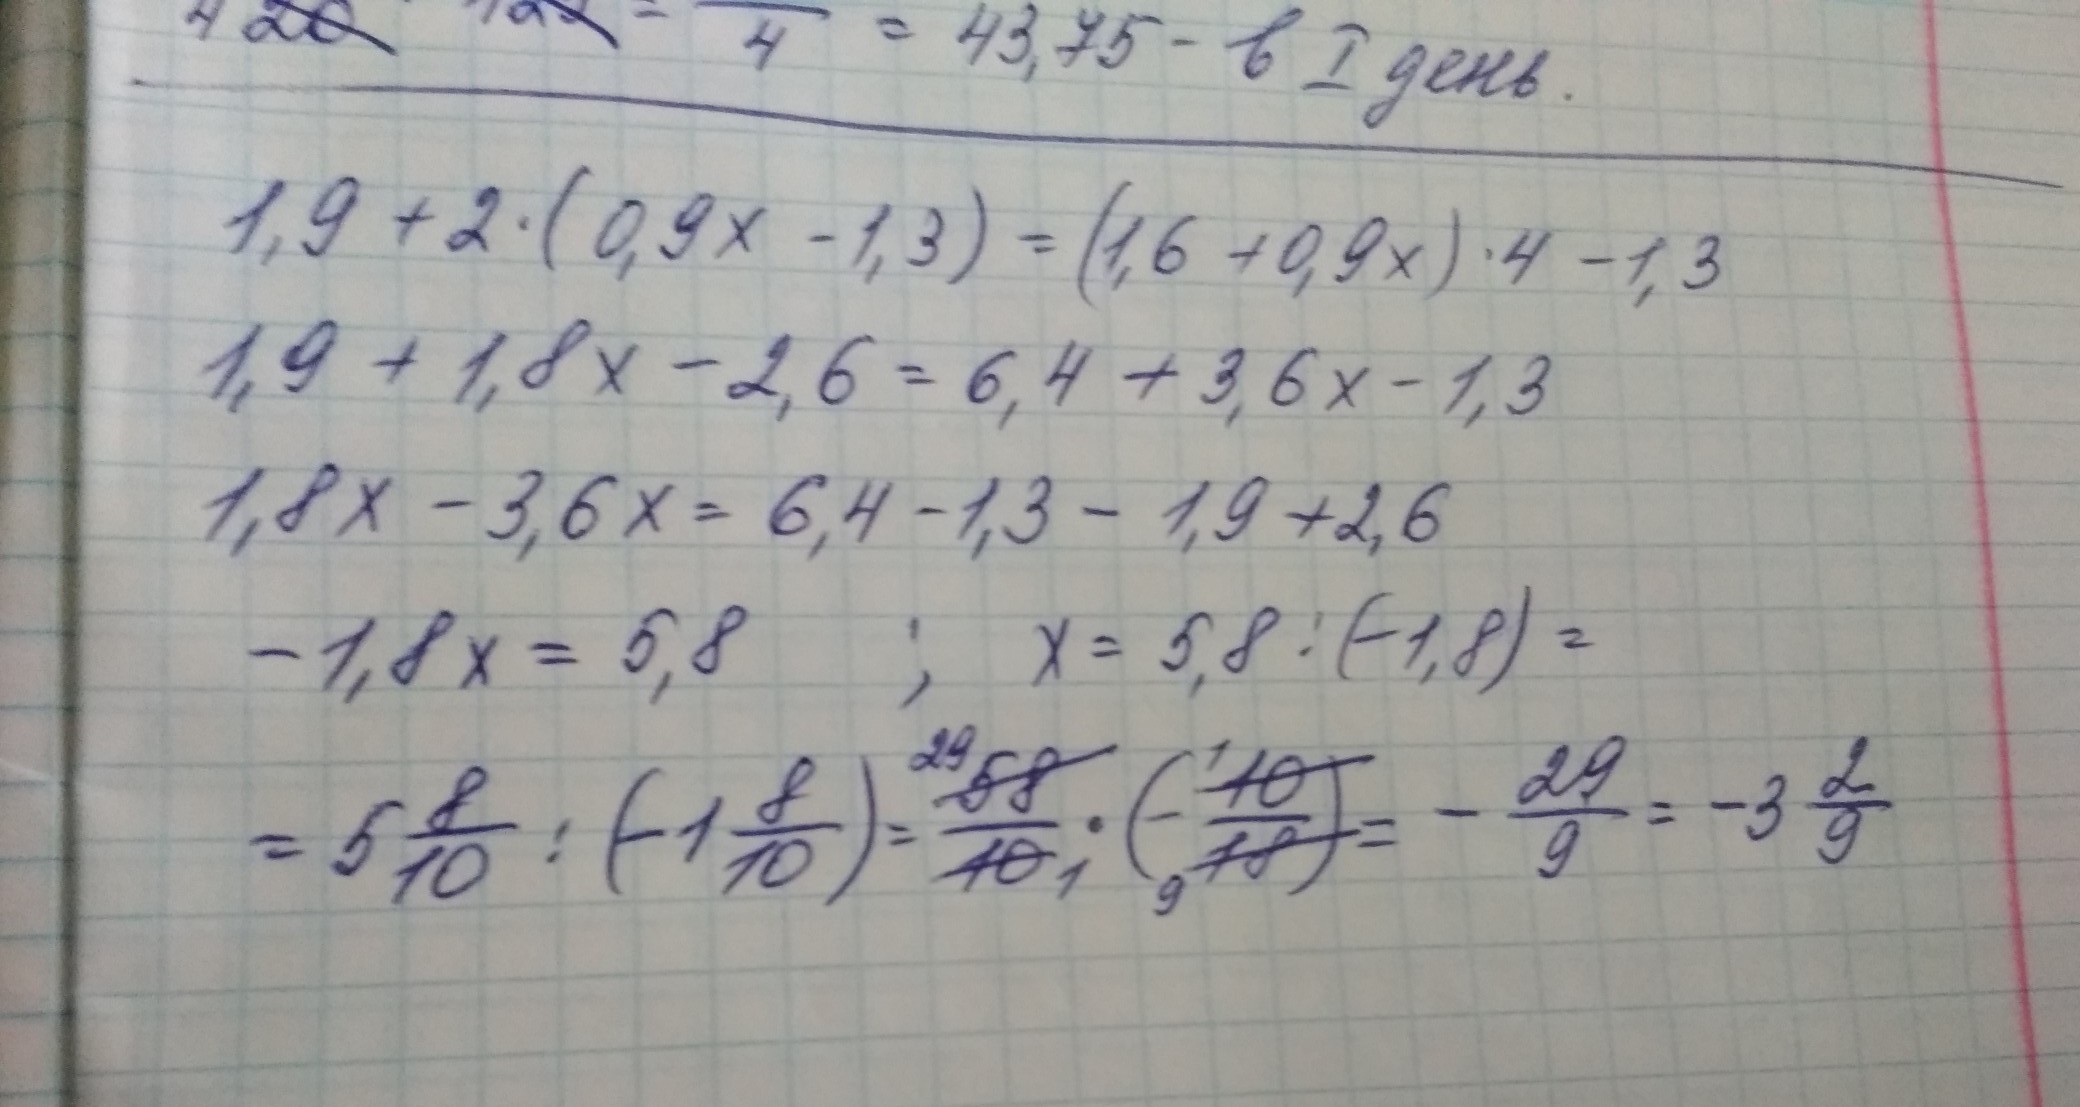 4 20 · 127 = — 4 = 43,75 - в I день.
1,9 + 2·(0,9x - 1,3) = (1,6 + 0,9x)·4 - 1,3
1,9 + 1,8x - 2,6 = 6,4 + 3,6x - 1,3
1,8x - 3,6x = 6,4 - 1,3 - 1,9 + 2,6
-1,8x = 5,8 ; x = 5,8 : (-1,8) =
= 5 8/10 : (-1 8/10) = 29 58/10 1 · (- 1 10/18 9) = - 29/9 = -3 2/9